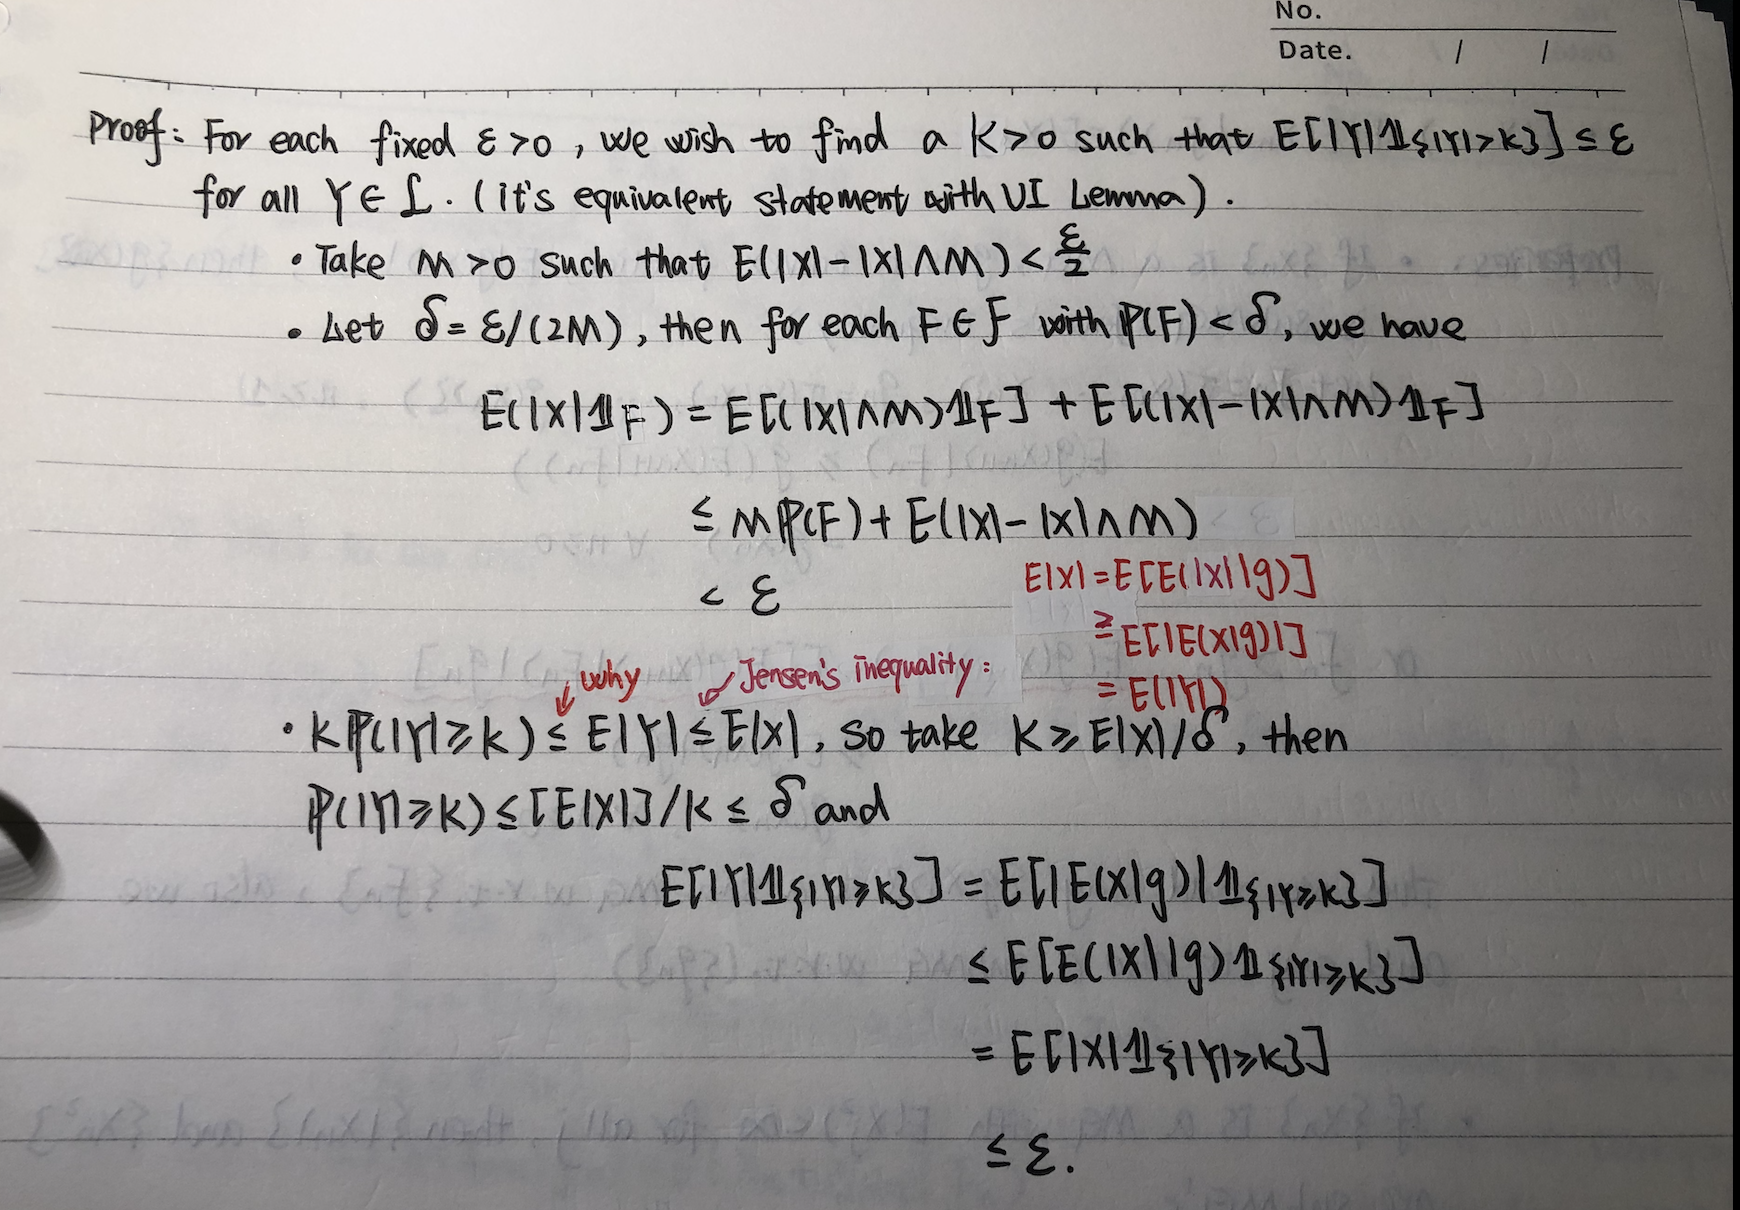 No.
Date. / /
Proof: For each fixed ε>0, we wish to find a K>0 such that E[|Y|𝟙{|Y|>K}] ≤ ε
for all Y∈ℒ. (it's equivalent statement with UI Lemma).
• Take M>0 such that E(|X|-|X|∧M) < ε/2
• Let δ = ε/(2M), then for each F∈ℱ with ℙ(F)<δ, we have
E(|X|𝟙F) = E[(|X|∧M)𝟙F] + E[(|X|-|X|∧M)𝟙F]
≤ Mℙ(F) + E(|X|-|X|∧M)
< ε
E|X| = E[E(|X||g)]
≥ E[|E(X|g)|]
= E(|Y|)
why
Jensen's inequality:
• Kℙ(|Y|⩾K) ≤ E|Y| ≤ E|X|, so take K ⩾ E|X|/δ, then
ℙ(|Y|⩾K) ≤ [E|X|]/K ≤ δ and
E[|Y|𝟙{|Y|⩾K}] = E[|E(X|g)|𝟙{|Y⩾K}]
≤ E[E(|X||g)𝟙{|Y|⩾K}]
= E[|X|𝟙{|Y|⩾K}]
≤ ε.